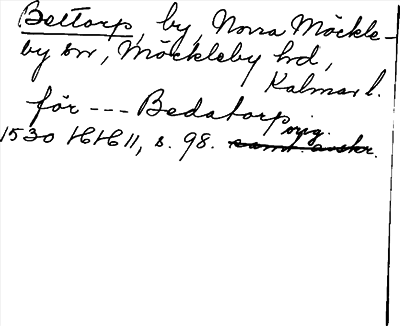 Bettorp, by, Norra Möckle-
by sn, Möckleby hd,
Kalmar l.
för --- Bedatorp
orig.
1530 HH 11, s. 98. samt. avskr.